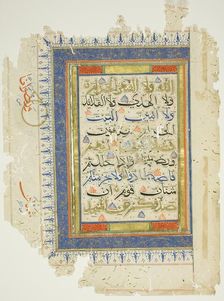 الله ولا الشهر الحرام
ولا الهدى ولا القلائد
ولا آمين البيت
الحرام يبتغون
فضلا من ربهم
ورضوانا واذا حللتم
فاصطادوا ولا يجرمنكم
شنان قوم ان
صدوكم عن المسجد